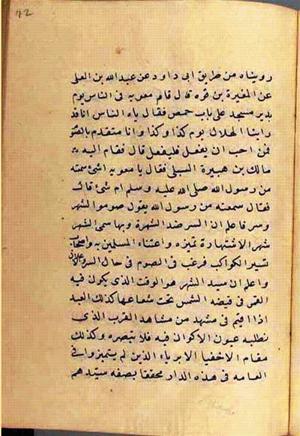 ٧٢
رويناه من طريق ابى داود عن عبد الله بن العلى
عن المغيرة بن قره قال قام معويه فى الناس يوم
بدير مسجد على باب حمص فقال يا ايها الناس انا قد
راينا الهلال يوم كذا وكذا وانا متقدم
فمن احب ان يفعل فليفعل قال فقام اليه
مالك بن هبيرة السبلى فقال يا معويه اشئ سمعته
من رسول الله صلى الله عليه وسلم ام شئ قال
فقال سمعته من رسول الله يقول صوموا الشهر
وسره فاعلم ان السر ضد الشهرة وبها سمى الشهر
شهر الاشتهاره تميزه واعتناء المسلمين به واصحاب
تسير الكواكب فرغب فى الصوم فى حال السر
واعلم ان سيد الشهر هو الوقت الذى يكون فيه
القمر فى قبضة الشمس تحت شعاعها كذلك العبد
اذا اقيم فى مشهد من مشاهد القرب الذى
تطلبه عيون الاكوان فيه فلا تبصره وكذلك
مقام الاخفيا الابرياء الذين لم يتميزوا فى
العامه فى هذه الدار محققا بصفه سيدهم